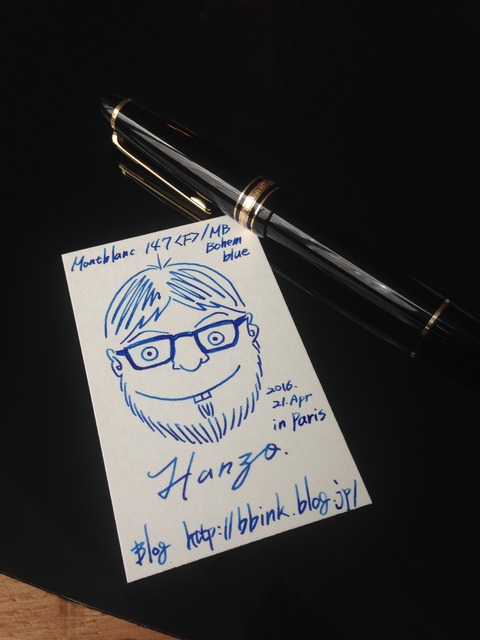 Montblanc 147<F>/MB
Bohem
blue
2016.
21.Apr
in Paris
Hanzo.
Blog http://bbink.blog.jp/